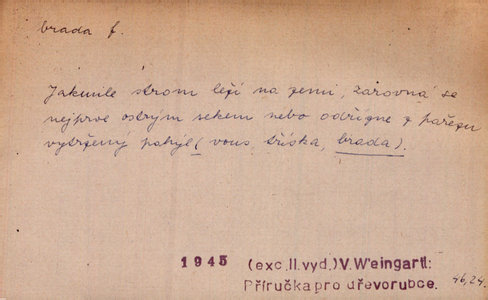 brada f.
Jakmile strom leží na zemi, zarovná se
nejprve ostrým sekem nebo odřízne z pařezu
vytržený pahýl ( vous, tříska, brada).
1945 (exc. II. vyd.) V. Weingartl:
Příručka pro dřevorubce. 46,24.